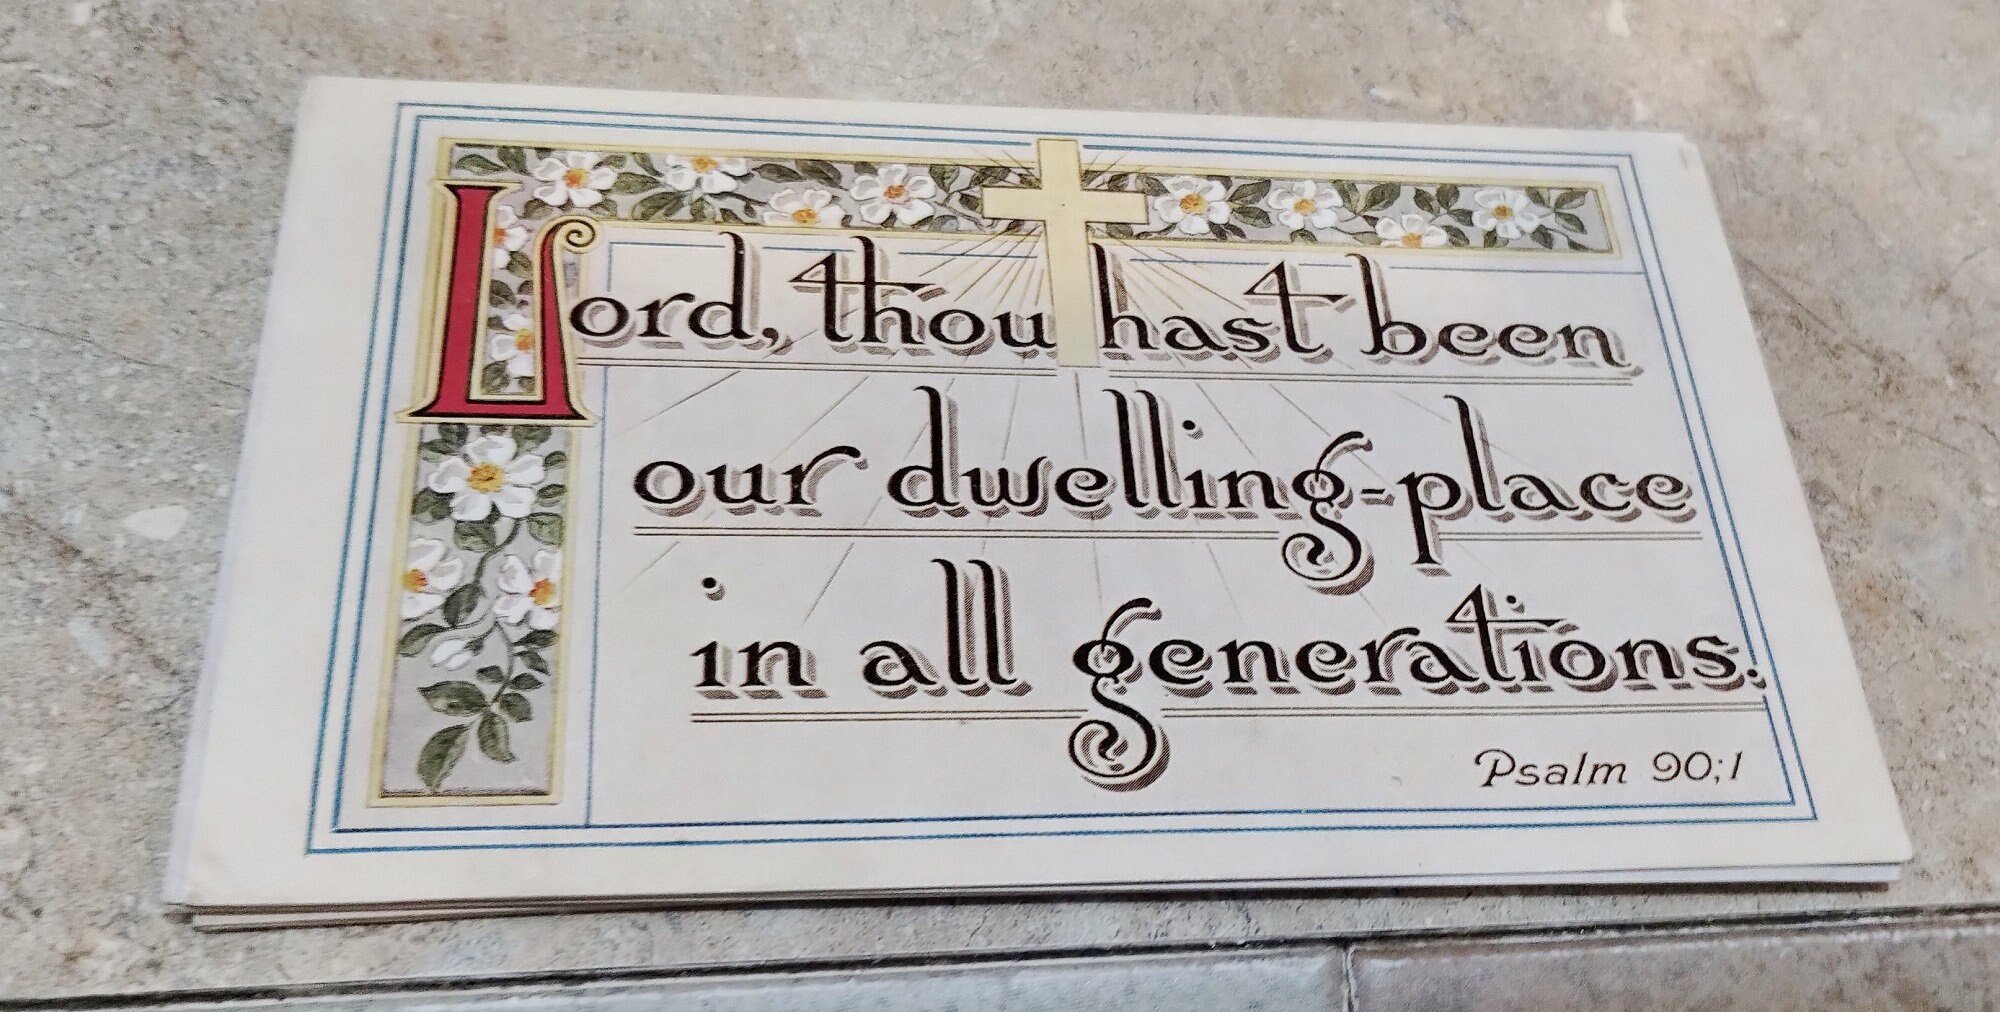 Lord, thou hast been
our dwelling-place
in all generations.
Psalm 90;1